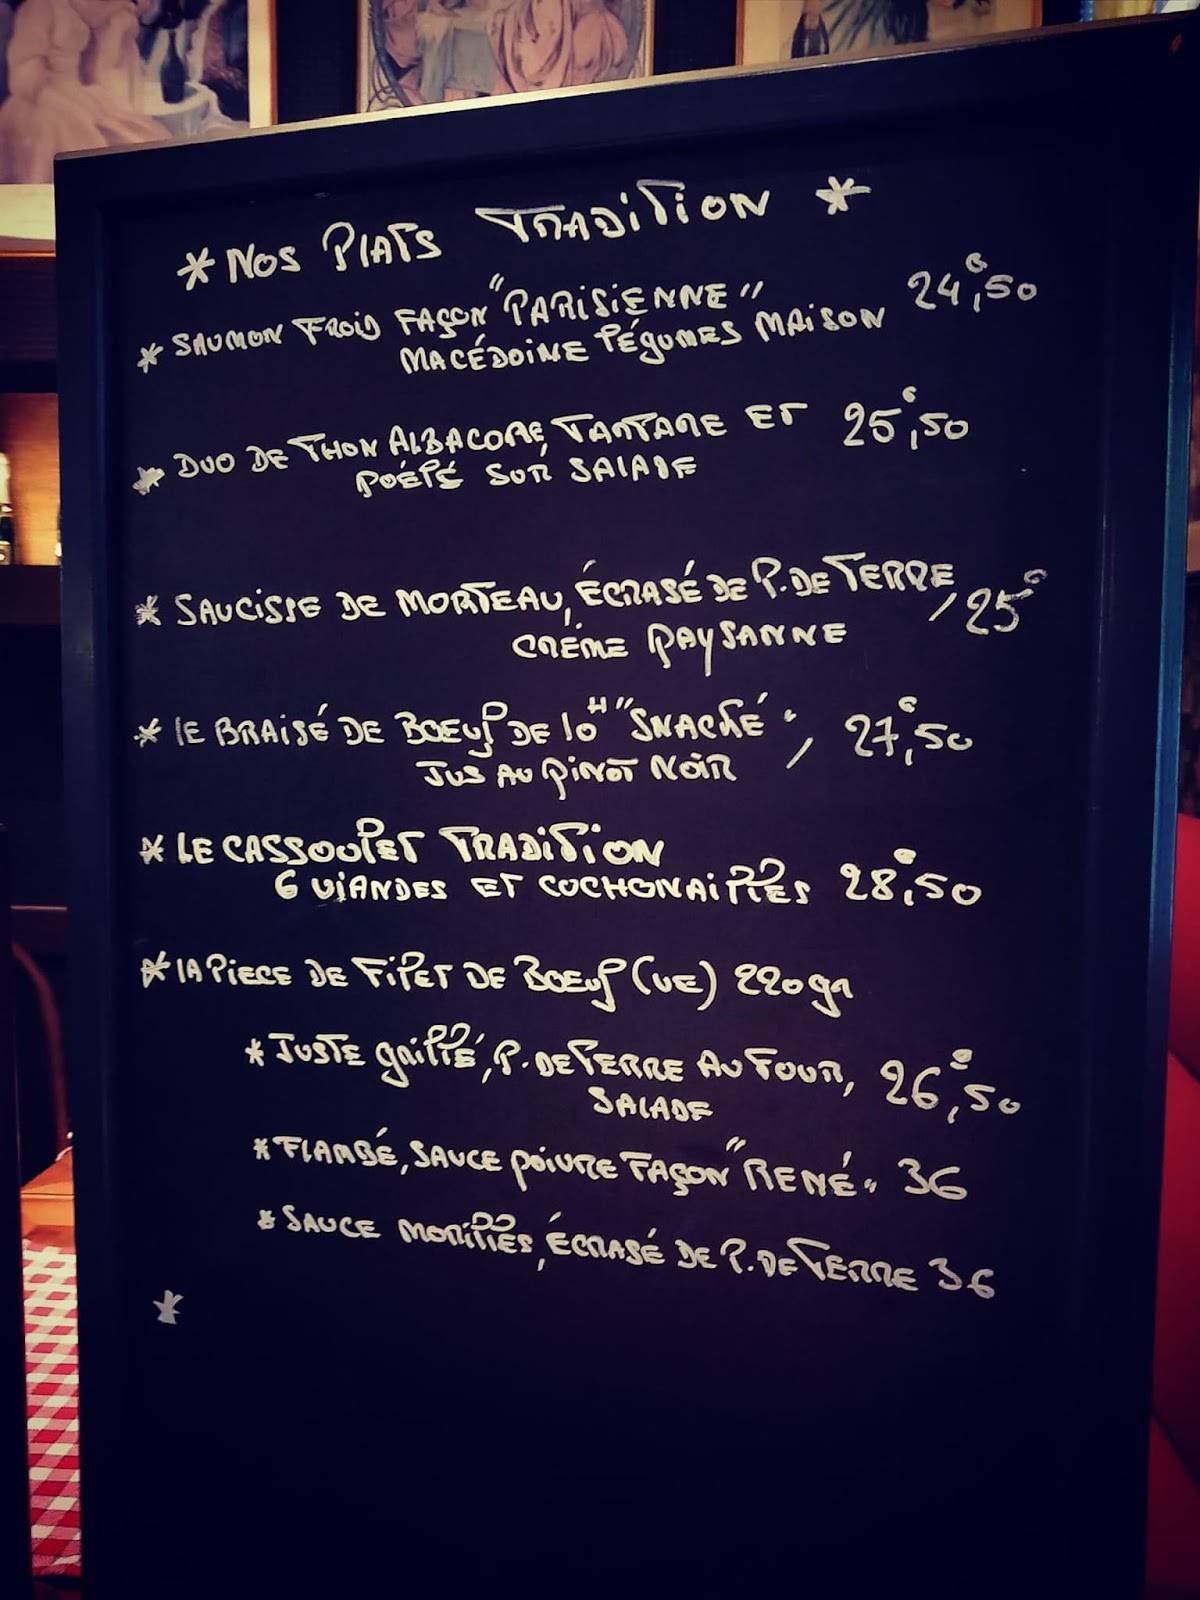 * NOS PLATS TRADITION *
* SAUMON FROID FAÇON "PARISIENNE"
MACÉDOINE LÉGUMES MAISON 24€,50
* DUO DE THON ALBACORE, TARTARE ET 25€,50
POÉLÉ SUR SALADE
* SAUCISSE DE MORTEAU, ÉCRASÉ DE P. DE TERRE, 25€
CRÉME PAYSANNE
* LE BRAISÉ DE BOEUF DE 10H "SNACKÉ", 27€,50
JUS AU PINOT NOIR
* LE CASSOULET TRADITION
6 VIANDES ET COCHONAILLES 28€,50
* LA PIECE DE FILET DE BOEUF (UE) 220gr
* JUSTE GRILLÉ, P. DE TERRE AU FOUR, 26€,50
SALADE
* FLAMBÉ, SAUCE POIVRE FAÇON "RENÉ" 36
* SAUCE MORILLES, ÉCRASÉ DE P. DE TERRE 36
*